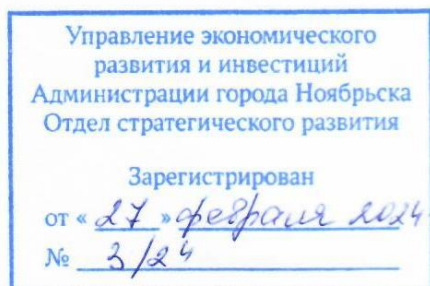 Управление экономического
развития и инвестиций
Администрации города Ноябрьска
Отдел стратегического развития
Зарегистрирован
от « 27 » февраля 2024
№ 3/24